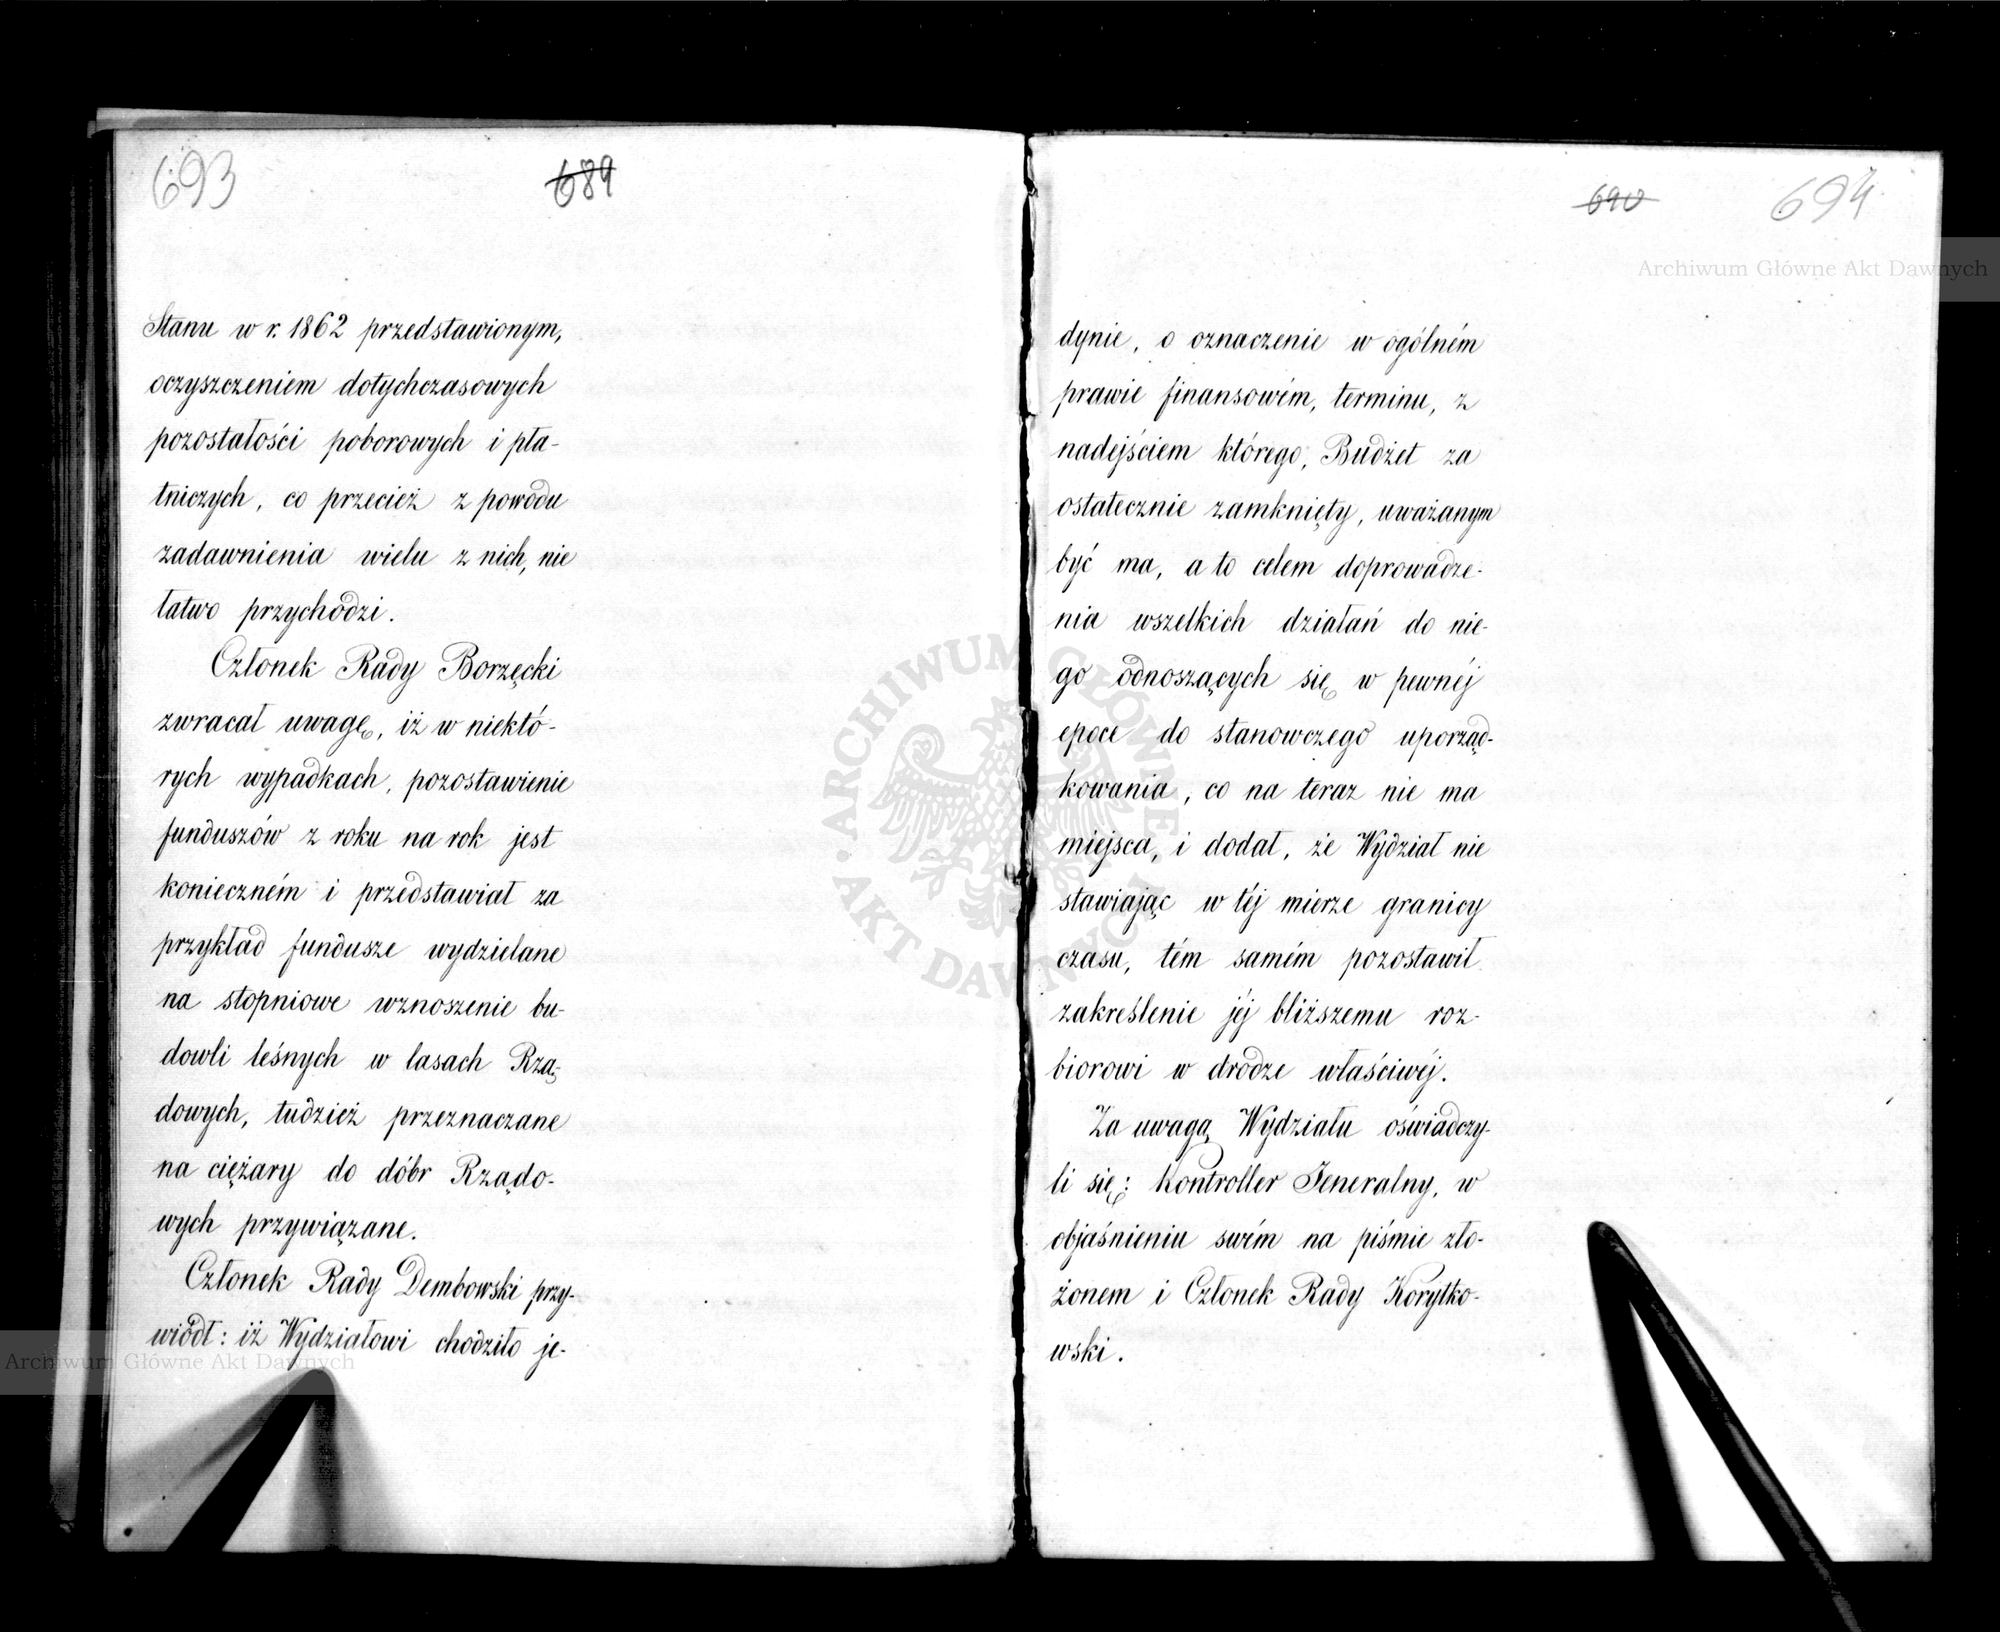 693
689
Stanu w r. 1862 przedstawionym,
oczyszczeniem dotychczasowych
pozostałości poborowych i pła-
tniczych, co przecież z powodu
zadawnienia wielu z nich, nie
łatwo przychodzi.
Członek Rady Borzęcki
zwracał uwagę, iż w niektó-
rych wypadkach, pozostawienie
funduszów z roku na rok jest
konieczném i przedstawiał za
przykład fundusze wydzielane
na stopniowe wznoszenie bu-
dowli leśnych w lasach Rzą-
dowych, tudzież przeznaczane
na ciężary do dóbr Rządo-
wych przywiązane.
Członek Rady Dembowski przy-
wiódł: iż Wydziałowi chodziło je-
690
694
dynie, o oznaczenie w ogólném
prawie finansowém, terminu, z
nadejściem którego, Budżet za
ostatecznie zamknięty, uważanym
być ma, a to celem doprowadze-
nia wszelkich działań do nie-
go odnoszących się w pewnéj
epoce do stanowczego uporząd-
kowania, co na teraz nie ma
miejsca, i dodał, że Wydział nie
stawiając w téj mierze granicy
czasu, tém samém pozostawił
zakreślenie jéj bliższemu roz-
biorowi w drodze właściwéj.
Za uwagą Wydziału oświadczy-
li się: Kontroller Jeneralny, w
objaśnieniu swém na piśmie zło-
żonem i Członek Rady Korytko-
wski.
Archiwum Główne Akt Dawnych
Archiwum Główne Akt Dawnych
ARCHIWUM GŁÓWNE AKT DAWNYCH